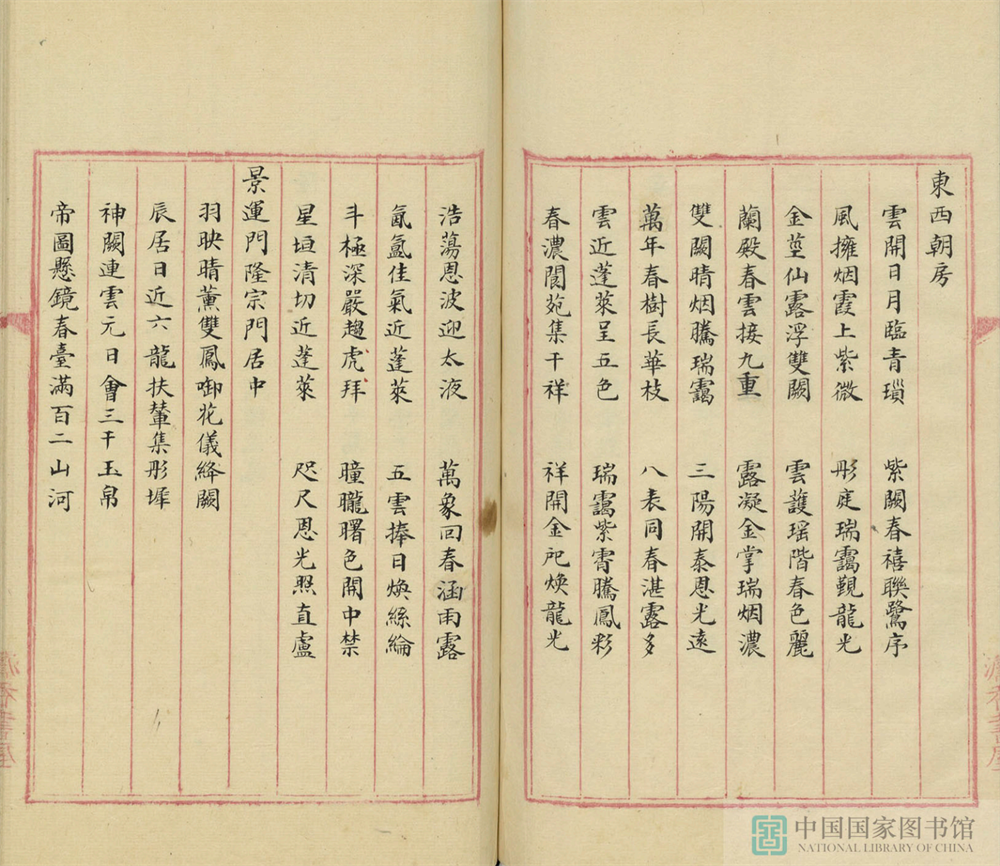 東西朝房
雲開日月臨青瑣　紫闕春禧聯鷺序
風擁烟霞上紫微　彤庭瑞靄覲龍光
金莖仙露浮雙闕　雲護瑶階春色麗
蘭殿春雲接九重　露凝金掌瑞烟濃
雙闕晴烟騰瑞靄　三陽開泰恩光遠
萬年春樹長華枝　八表同春湛露多
雲近蓬萊呈五色　瑞靄紫霄騰鳳彩
春濃閬苑集千祥　祥開金戺煥龍光
浩蕩恩波迎太液　萬象回春涵雨露
氤氳佳氣近蓬萊　五雲捧日煥絲綸
斗極深嚴趨虎拜　曈曨曙色開中禁
星垣清切近蓬萊　咫尺恩光照直廬
景運門隆宗門居中
羽映晴薰雙鳳啣花儀絳闕
辰居日近六龍扶輦集彤墀
神闕連雲元日會三千玉帛
帝圖懸鏡春臺滿百二山河
中国国家图书馆
NATIONAL LIBRARY OF CHINA